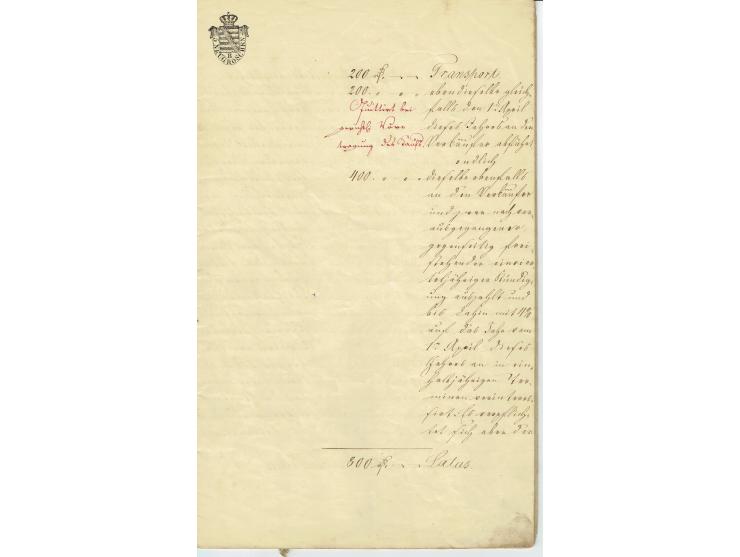 2 NEUGROSCHEN
200 ₰. — — Transport
200. „ „ ebendieselbe gleich
falls den 1n April
dieses Jahres an den
Verkäufer abführt
Quittirt bei
gerichtl. Vor
tragung des Kaufs.
endlich
400. „ „ dieselbe ebenfalls
an den Verkäufer
und zwar nach vor
ausgegangener
gegenseitig frei
stehender einvier
teljähriger Kündig
ung auszahlt und
bis dahin mit 4%
auf das Jahr vom
1n April dieses
Jahres an in ein
halbjährigen Ter
minen verinteres
sirt. Es verpflich
tet sich aber der
800 ₰. — — Latus.